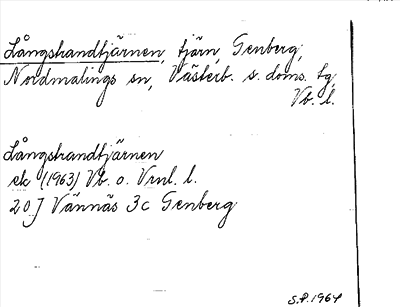 Långstrandtjärnen, tjärn, Genberg,
Nordmalings sn, Västerb. s. doms. tg,
Vb. l.
Långstrandtjärnen
ek (1963) Vb. o. Vrml. l.
20 J Vännäs 3c Genberg
S.P. 1964